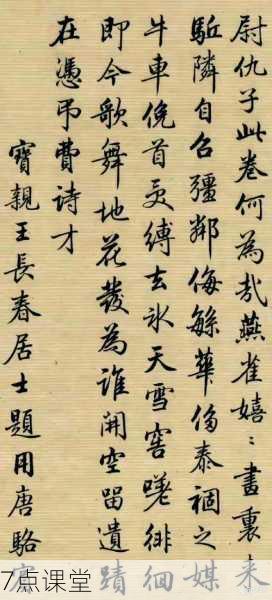 尉仇子此卷何為哉燕雀嬉〻畫裏来
駈隣自召彊鄰侮緐華侈泰禍之媒
牛車俛首受縛去氷天雪窖嗟徘徊
即今歌舞地花發為誰開空留遺蹟
在憑弔費詩才
寶親王長春居士題用唐駱賓
7点课堂